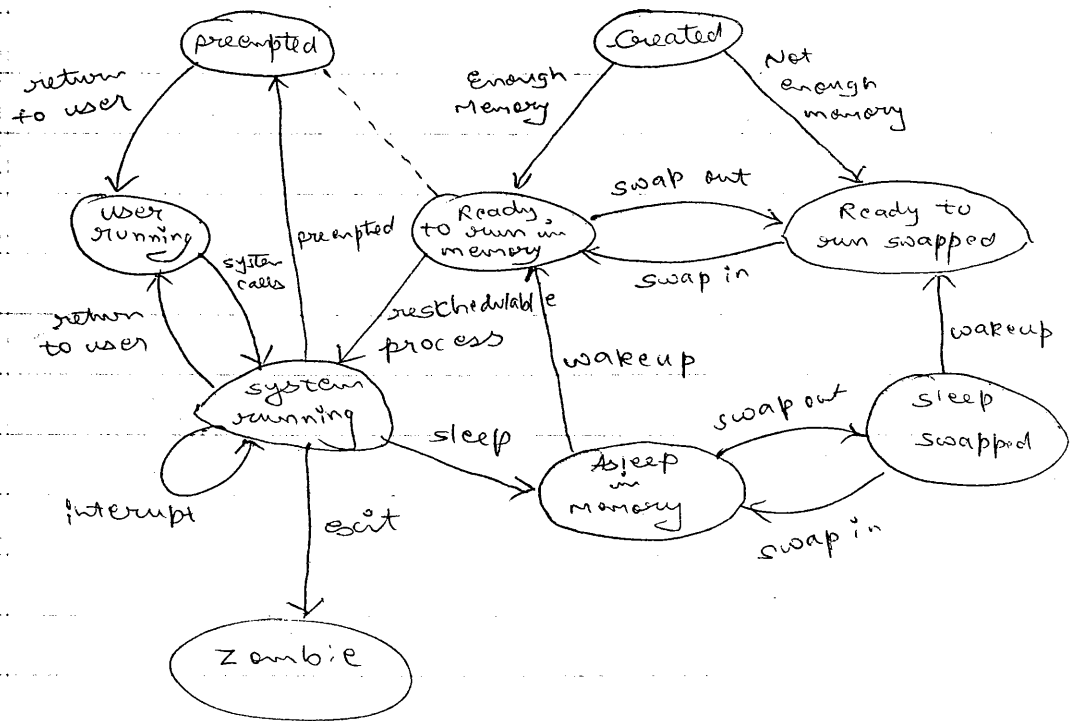 preempted
Created
return
to user
Enough
Memory
Not
enough
memory
user
running
system
calls
preempted
Ready
to run in
memory
swap out
swap in
Ready to
run swapped
return
to user
reschedulable
process
wakeup
wakeup
system
running
sleep
swap out
sleep
swapped
Asleep
in
memory
swap in
interupt
exit
Zombie